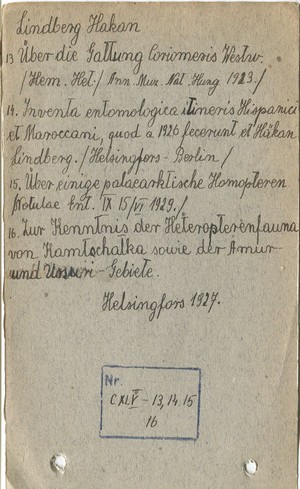 Lindberg Hakan
13 Über die Gattung Coriomeris Westw.
/Hem. Het./ Ann. Mus. Nat. Hung 1923./
14. Inventa entomologica itineris Hispanici
et Maroccani, quod a 1926 fecerunt et Håkan
Lindberg. /Helsingfors - Berlin/
15. Über einige palaearktische Homopteren
Notulae Ent. IX 15/VI 1929./
16. Zur Kenntnis der Heteropterenfauna
von Kamtschatka sowie der Amur-
und Ussuri - Gebiete.
Helsingfors 1927.
Nr.
CXLV - 13, 14. 15
16